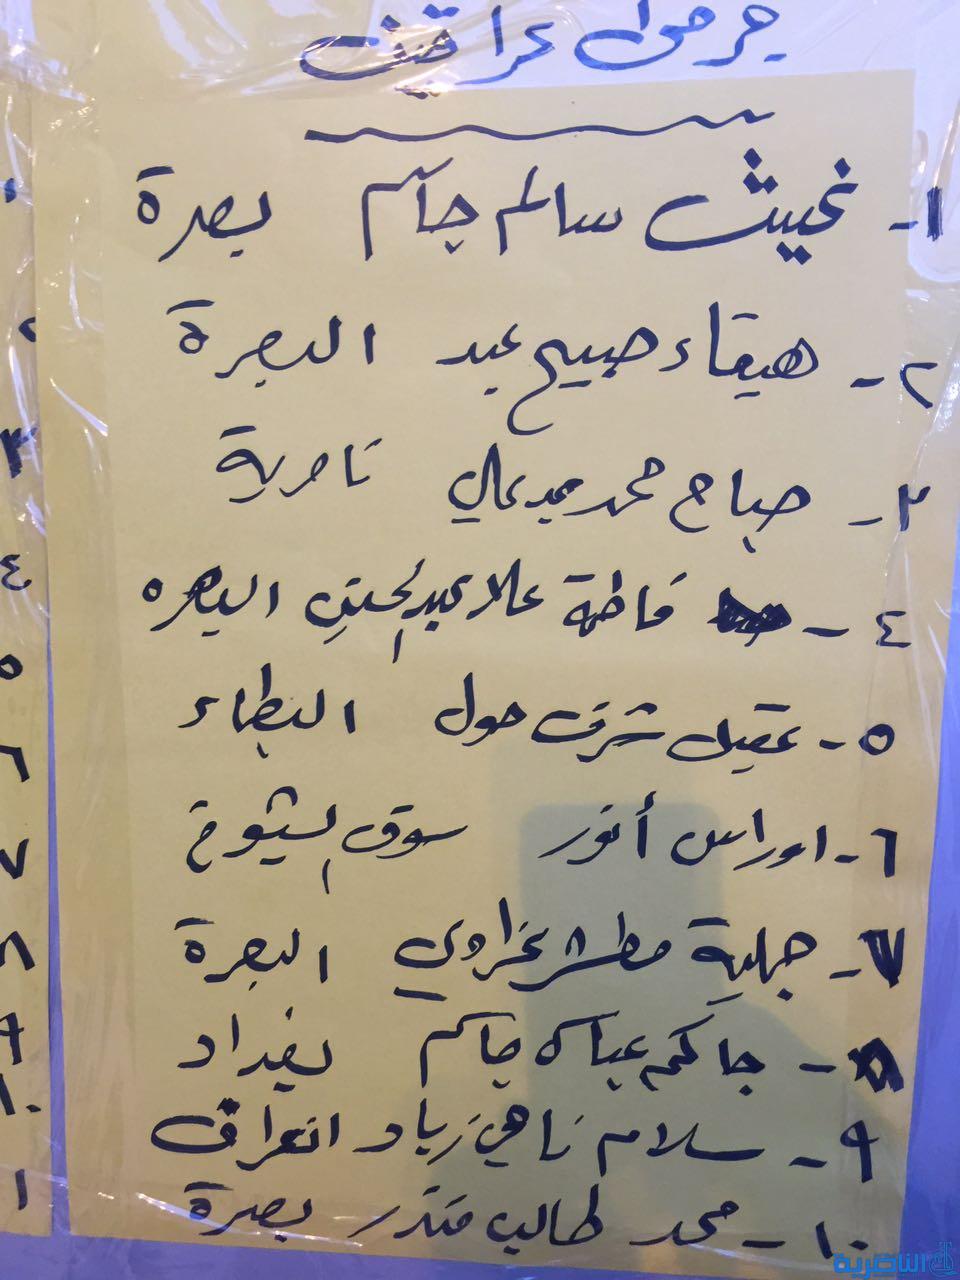 جرحى عراقيين
١- غيث سالم جاسم بصرة
٢- هيفاء صبيح عبد البصرة
٣- صباح محمد عبد عالي ناصرية
٤- فاطمة علاء عبد الحسين البصره
٥- عقيل شرف حول البطحاء
٦- اوراس أنور سوق الشيوخ
٧- جليلة مطشر البصرة
٨- عباس جاسم بغداد
٩- سلام ناهي زياد العراق
١٠- محمد طالب منذر بصرة
الناصرية
٢
٣
٤
٥
٦
٧
٨
٩
١٠